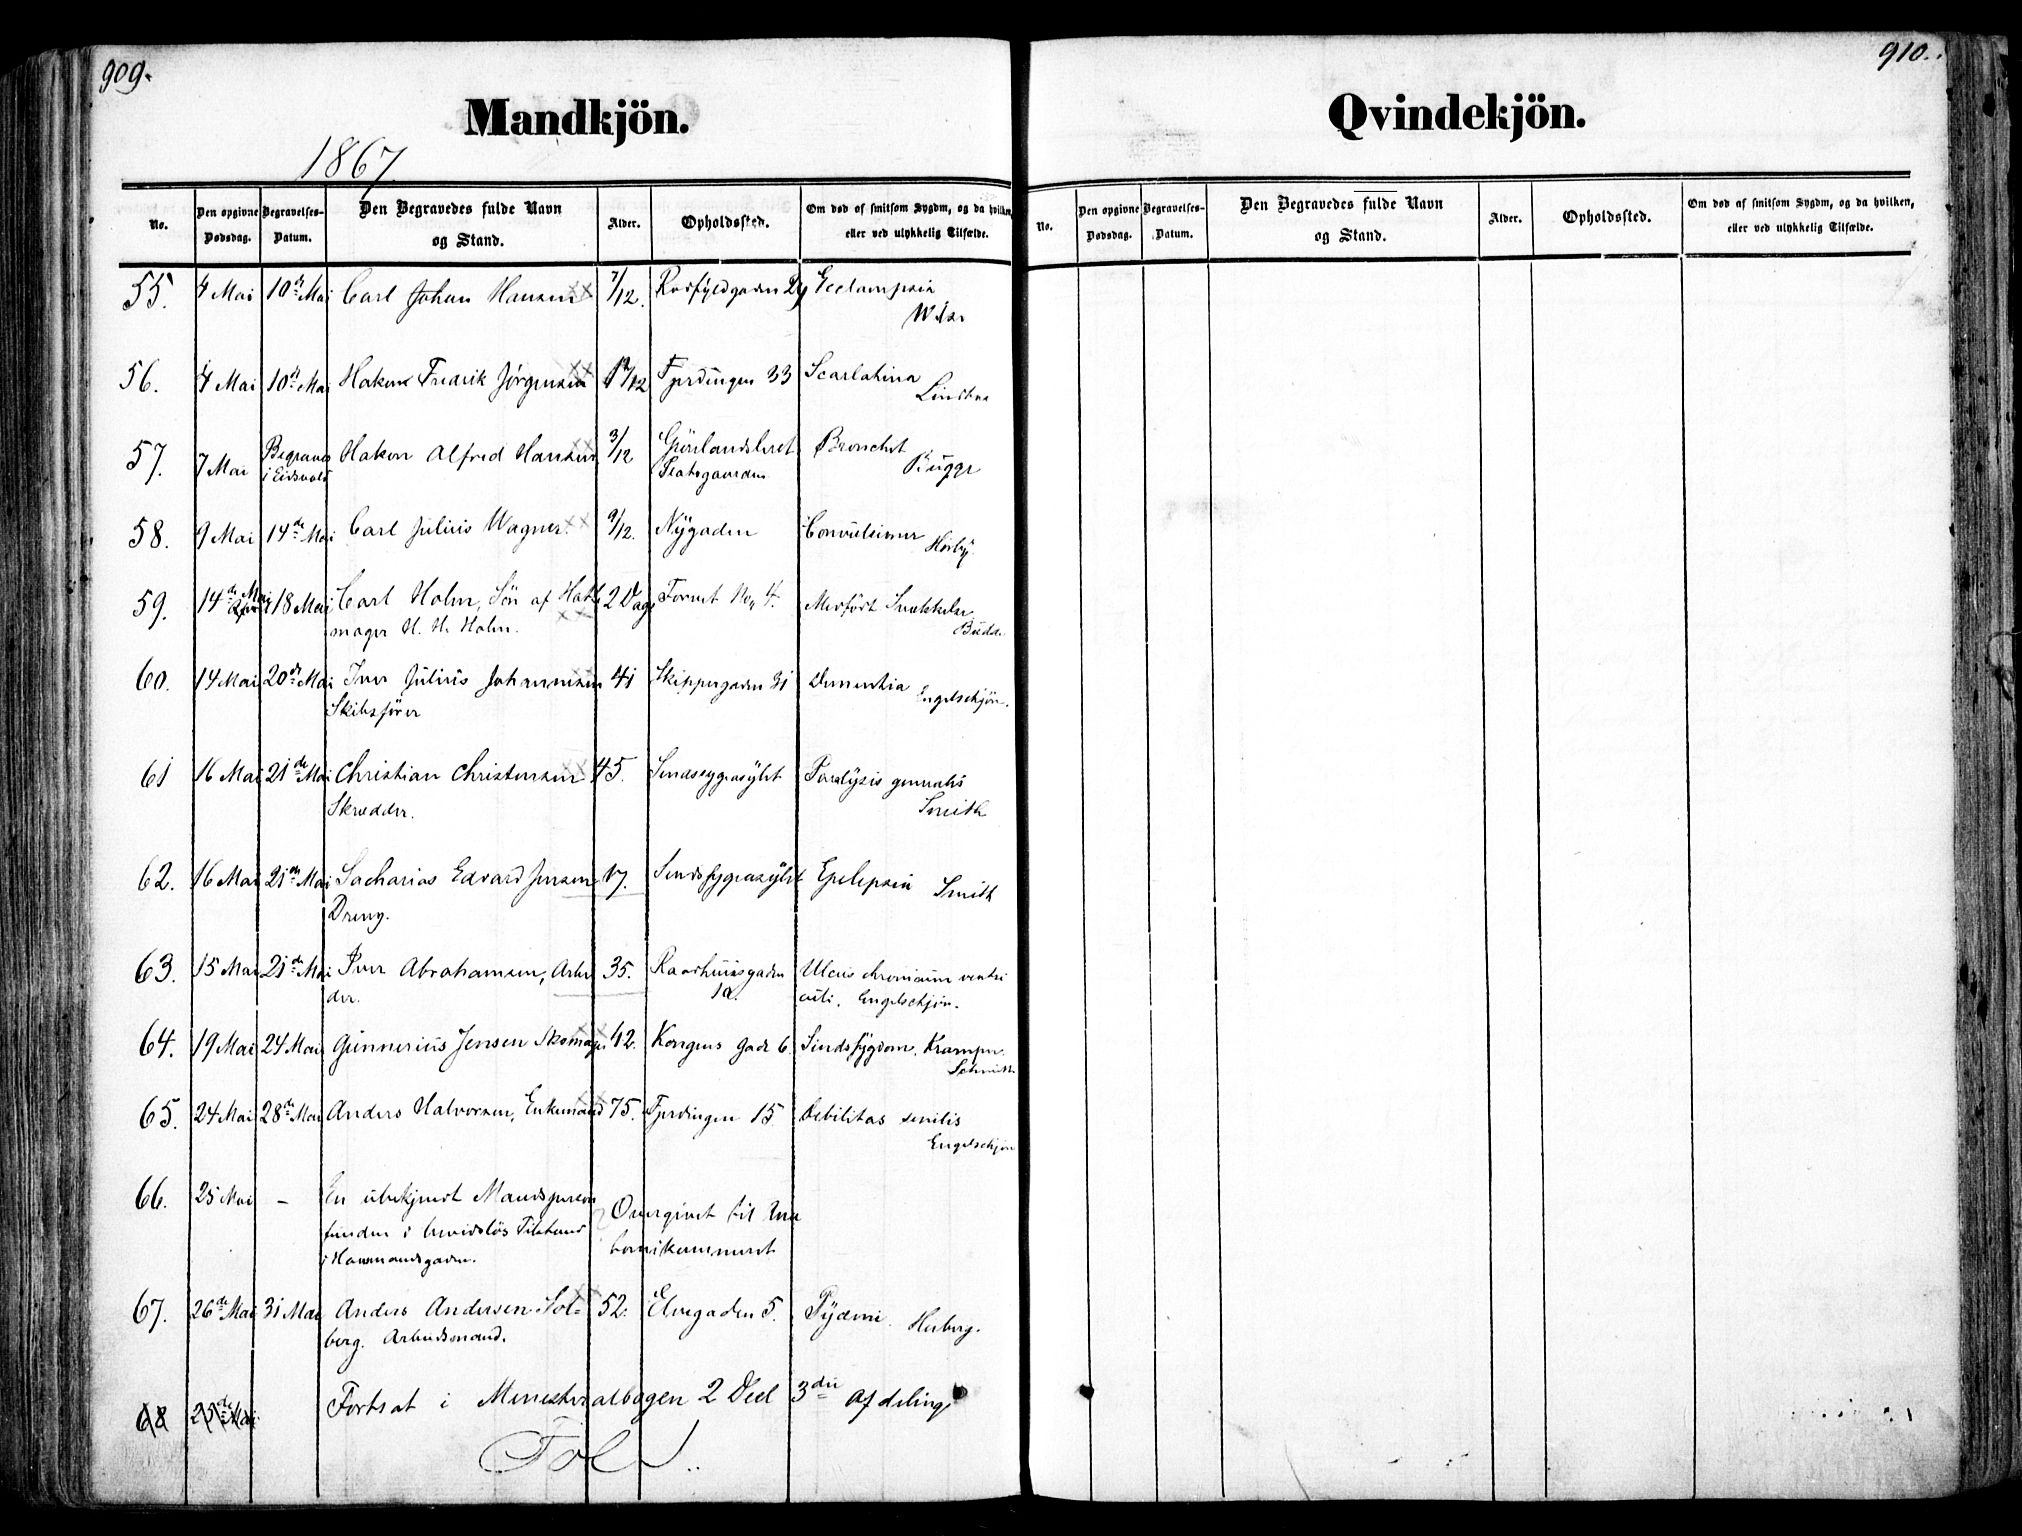 909.
Mandkjön.
1867
No.
Den opgivne Dødsdag.
Begravelses-Datum.
Den Begravedes fulde Navn og Stand.
Alder.
Opholdssted.
Om død af smitsom Sygdm, og da hvilken, eller ved ulykkelig Tilfælde.
55. 4 Mai 10de Mai Carl Johan Hansen 7/12. 29 Eclampsia
56. 4 Mai 10de Mai Hakon Fredrik Jørgensen /12 Fjerdingen 33 Scarlatina
57. 7 Mai Begraves Hakon Alfred Hansen 3/12 Grönlandsleret Bronchit
i Eidsvold Bugge
58. 9 Mai 14de Mai Carl Julius Wagner 9/12. Nygaden Convulsioner
59. 14de Mai 18 Mai Carl Holm, Sön af Hatte 2 Dage Torvet No 4.
mager H. H. Holm.
60. 14 Mai 20de Mai Iver Julius Johannesen 41 Skippergaden 31 Dementia
Skibsfører Engelschjön.
61 16 Mai 21de Mai Christian Christensen 45. Sindssygeasylet Paralysis generalis
Skrædder. Smith
62. 16 Mai 21de Mai Sacharias Edvard Jensen 17. Sindssygeasylet Epelepsia Smith
Dreng.
63. 15 Mai 21de Mai Iver Abrahamsen, Arbei 35. Raadhuusgaden Ulcus chronicum ventri
der. 12. culi. Engelschjön.
64. 19 Mai 24 Mai Gunnerius Jensen Skomager 42. Kongens Gade 6 Sindssygdom. Kramper.
65. 24 Mai 28de Mai Anders Halvorsen, Enkemand 75. Fjerdingen 15 Debilitas senilis
Engelschjön
66. 25 Mai - En ubekjendt Mandsperson
funden i Livslös Tilstand Overgivet til Ana
i Hammondsgaden. tomikammeret
67. 26de Mai 31 Mai Anders Andersen Sol= 52. Elvegaden 5. Pyæmi. Heiberg.
berg. Arbeidsmand.
68 25de Mai. Fortsat i Ministerialbogen 2 Deel 3die Afdeling
Fol 1.
910.
Qvindekjön.
No.
Den opgivne Dødsdag.
Begravelses-Datum.
Den Begravedes fulde Navn og Stand.
Alder.
Opholdssted.
Om død af smitsom Sygdm, og da hvilken, eller ved ulykkelig Tilfælde.